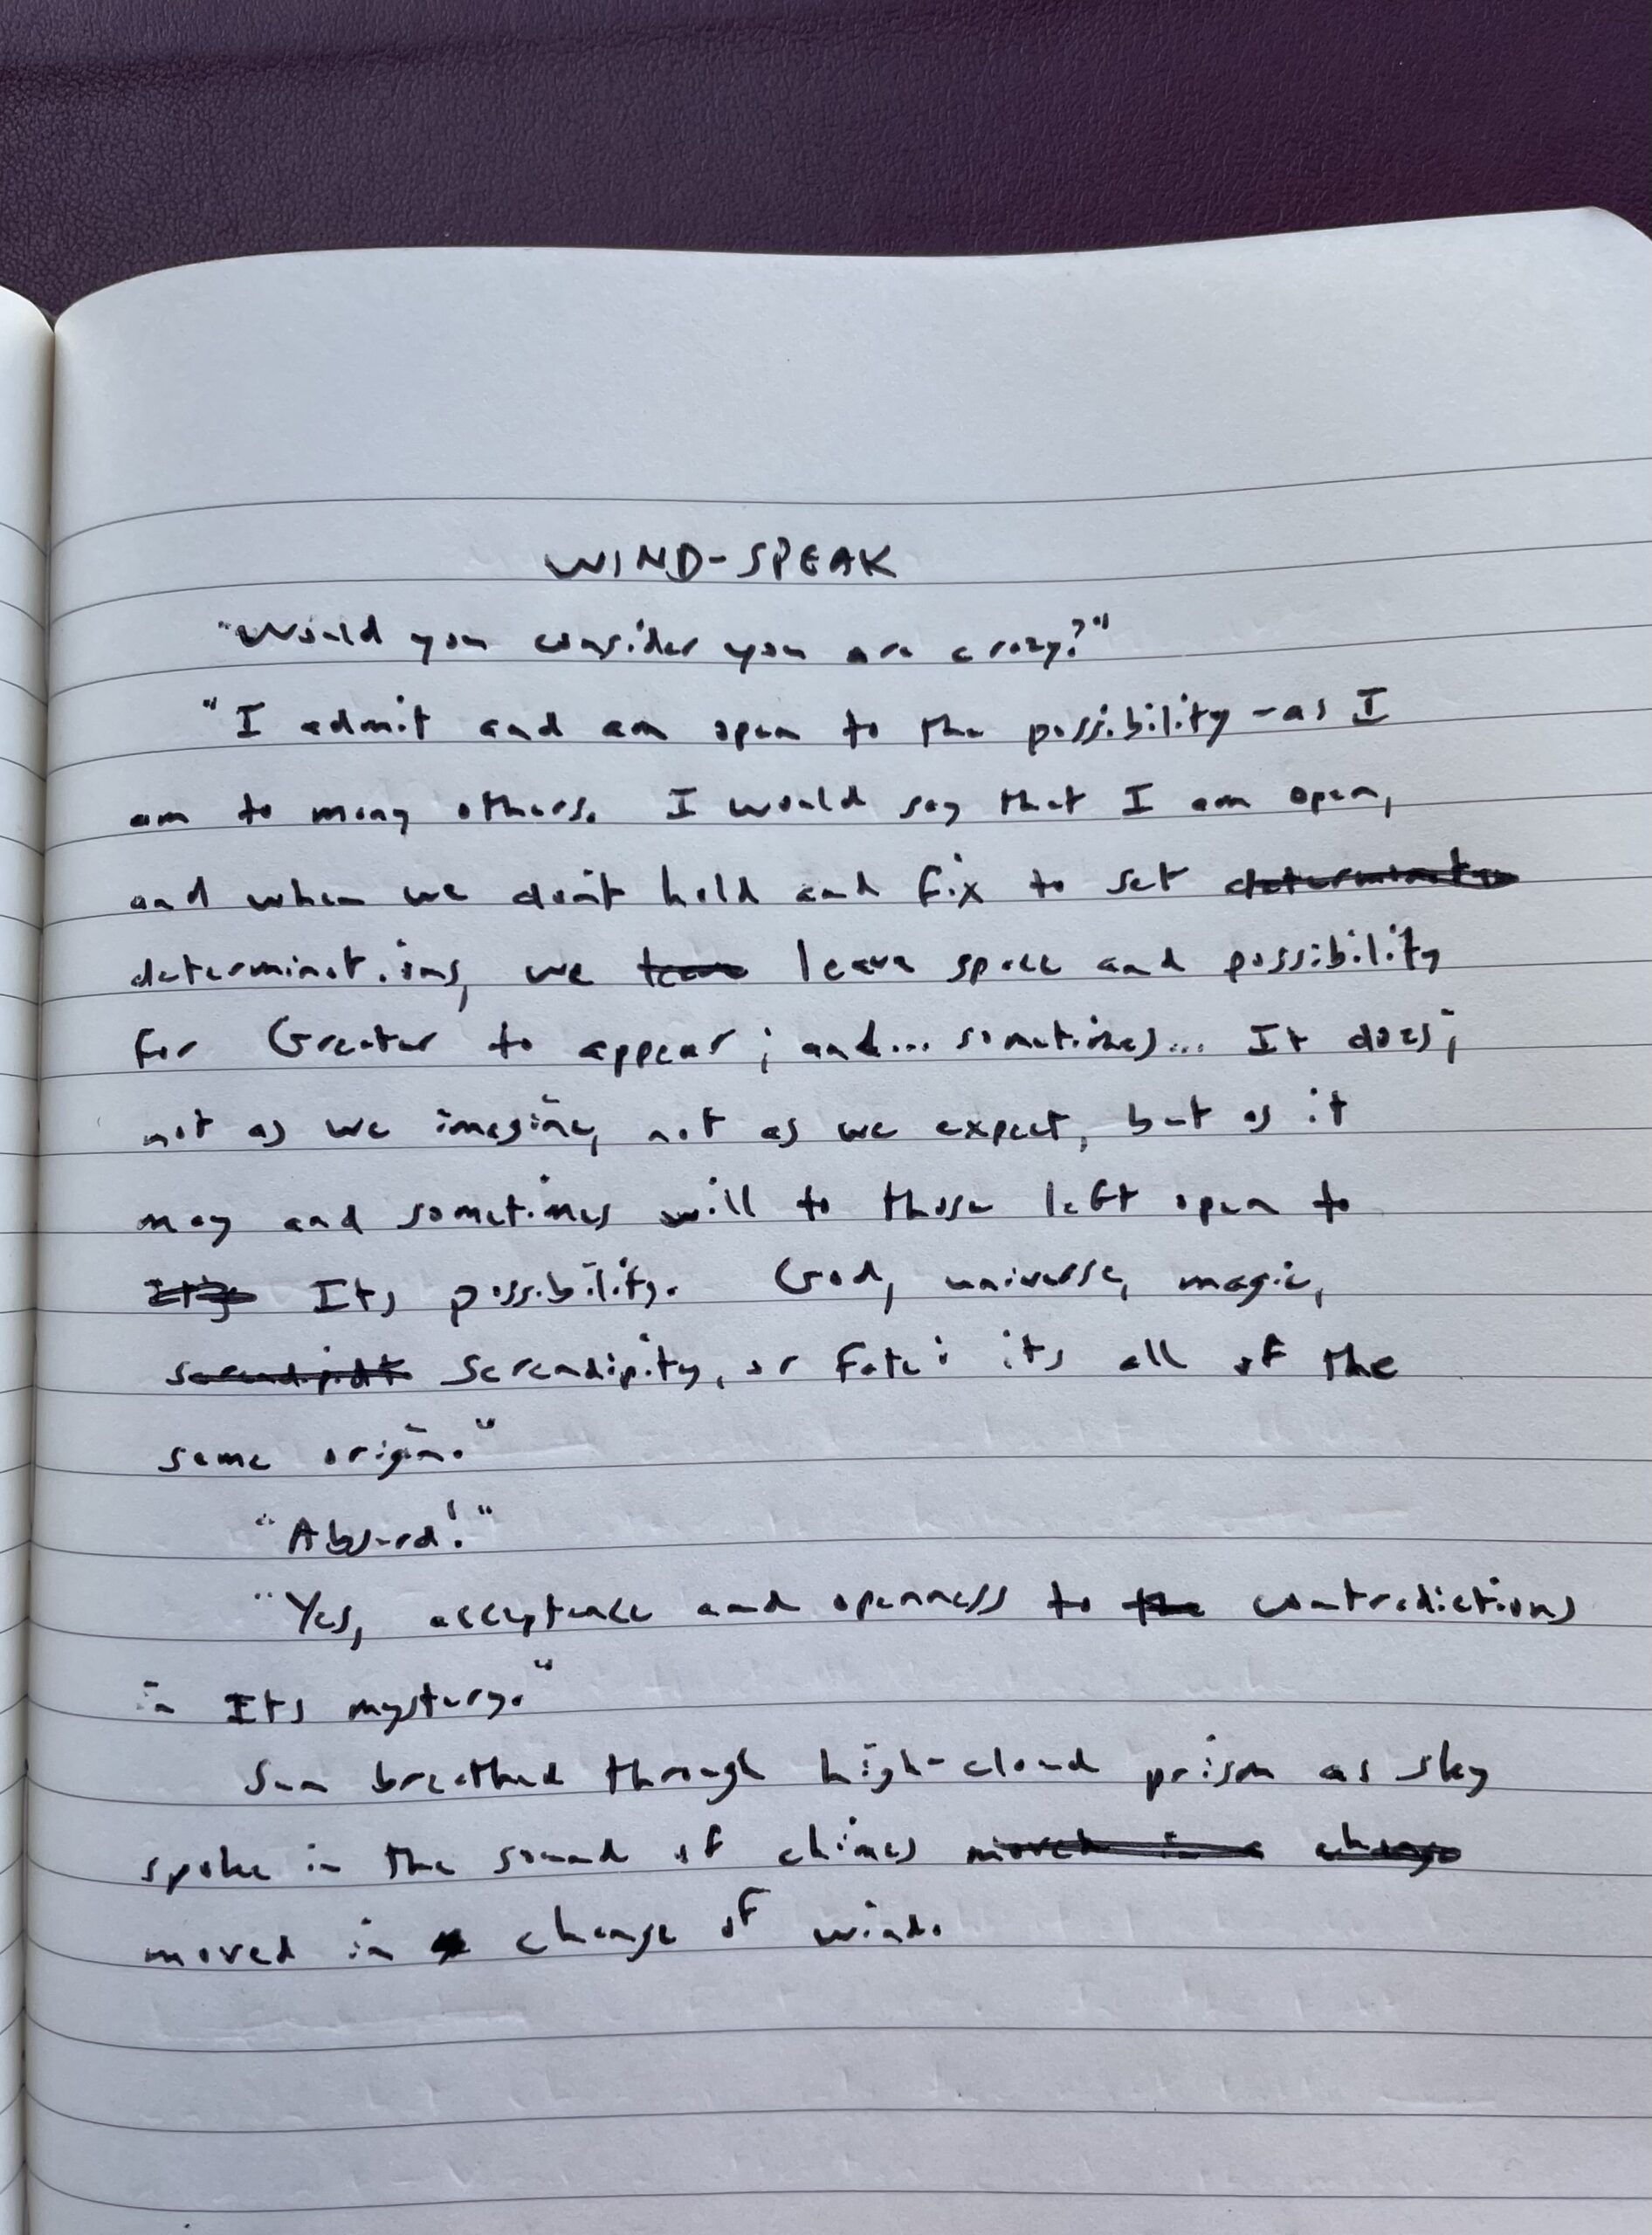 WIND-SPEAK
"Would you consider you are crazy?"
"I admit and am open to the possibility - as I
am to many others. I would say that I am open,
and when we don't hold and fix to set
determinations, we leave space and possibility
for Greater to appear; and... sometimes... It does;
not as we imagine, not as we expect, but as it
may and sometimes will to those left open to
Its possibility. God, universe, magic,
serendipity, or Fate: its all of the
same origin."
"Absurd!"
"Yes, acceptance and openness to contradictions
in Its mystery."
Sun breathed through high-cloud prism as sky
spoke in the sound of chimes
moved in change of wind.